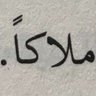 ملاكاً.